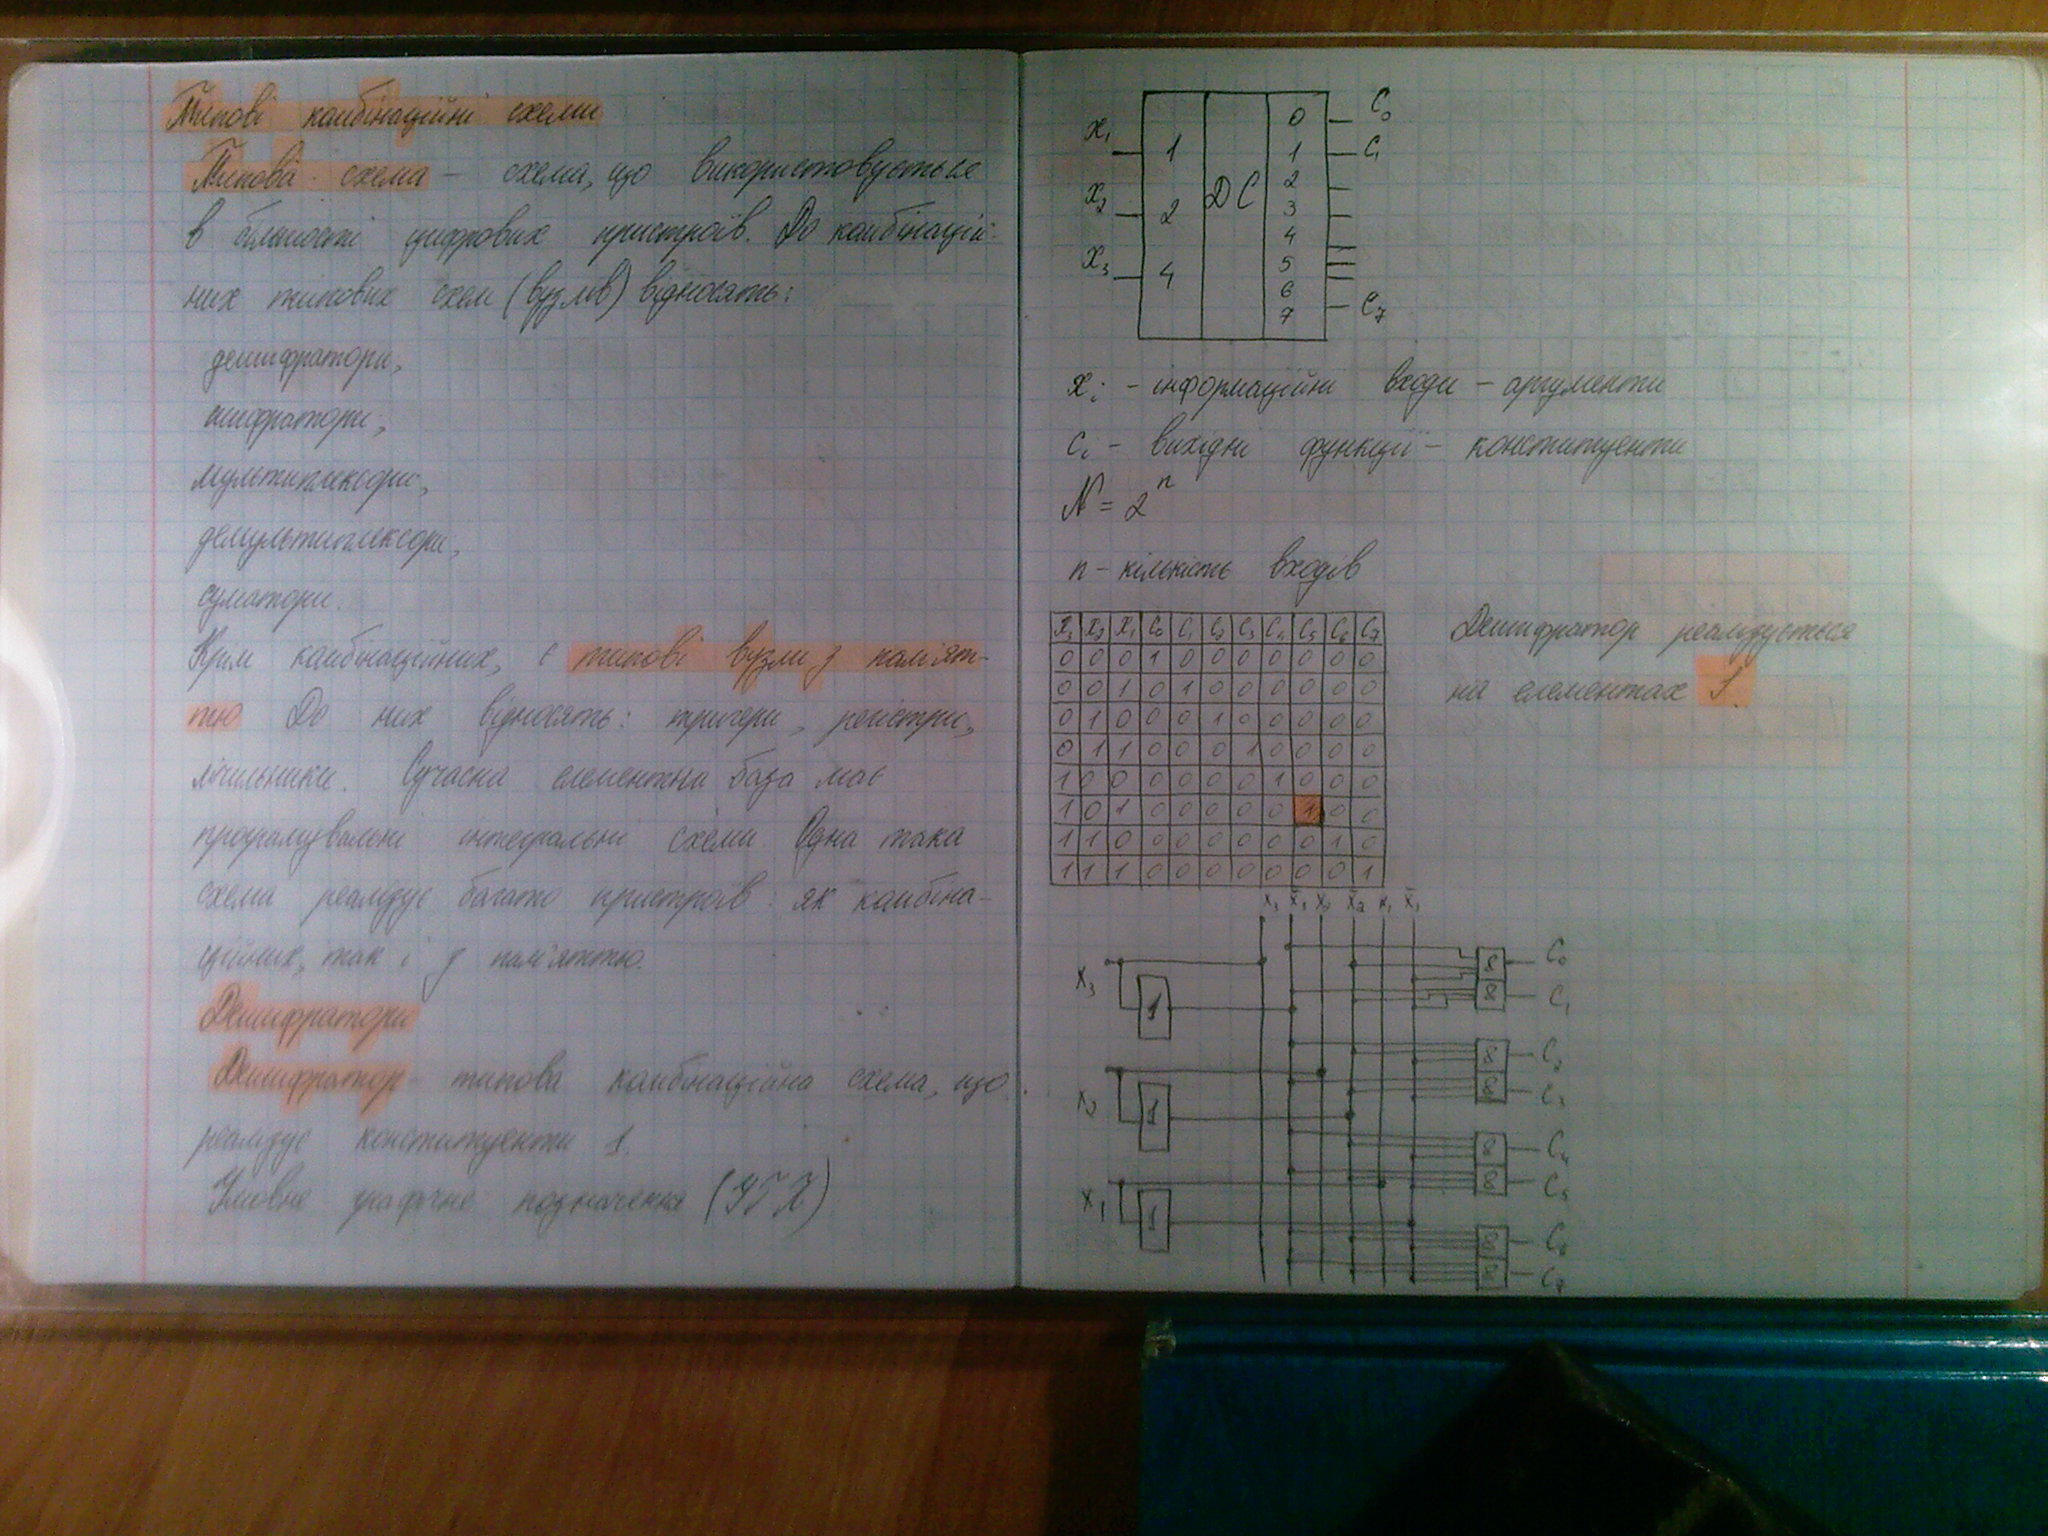 Типові комбінаційні схеми
Типова схема – схема, що використовується
в більшості цифрових пристроїв. До комбінацій-
них типових схем (вузлів) відносять:
дешифратори,
шифратори,
мультиплексори,
демультиплексори,
суматори.
Крім комбінаційних, є типові вузли з пам'ят-
тю До них відносять: тригери, регістри,
лічильники. Сучасна елементна база має
програмувальні інтегральні схеми. Одна така
схема реалізує багато пристроїв: як комбіна-
ційних, так і з пам'яттю.
Дешифратори
Дешифратор – типова комбінаційна схема, що
реалізує конституенти 1.
Умовне графічне позначення (УГП)
0 C₀
X₁ 1 1 C₁
2
X₂ 2 DC 3
4
X₃ 4 5
6
7 C₇
Xᵢ – інформаційні входи – аргументи
Cᵢ – вихідні функції – конституенти
N = 2ⁿ
n – кількість входів
X₃ X₂ X₁ C₀ C₁ C₂ C₃ C₄ C₅ C₆ C₇
0 0 0 1 0 0 0 0 0 0 0
0 0 1 0 1 0 0 0 0 0 0
0 1 0 0 0 1 0 0 0 0 0
0 1 1 0 0 0 1 0 0 0 0
1 0 0 0 0 0 0 1 0 0 0
1 0 1 0 0 0 0 0 1 0 0
1 1 0 0 0 0 0 0 0 1 0
1 1 1 0 0 0 0 0 0 0 1
Дешифратор реалізується
на елементах
X₃ X̄₃ X₂ X̄₂ X₁ X̄₁
& C₀
X₃ 1 & C₁
& C₂
X₂ 1 & C₃
& C₄
& C₅
X₁ 1
& C₆
& C₇